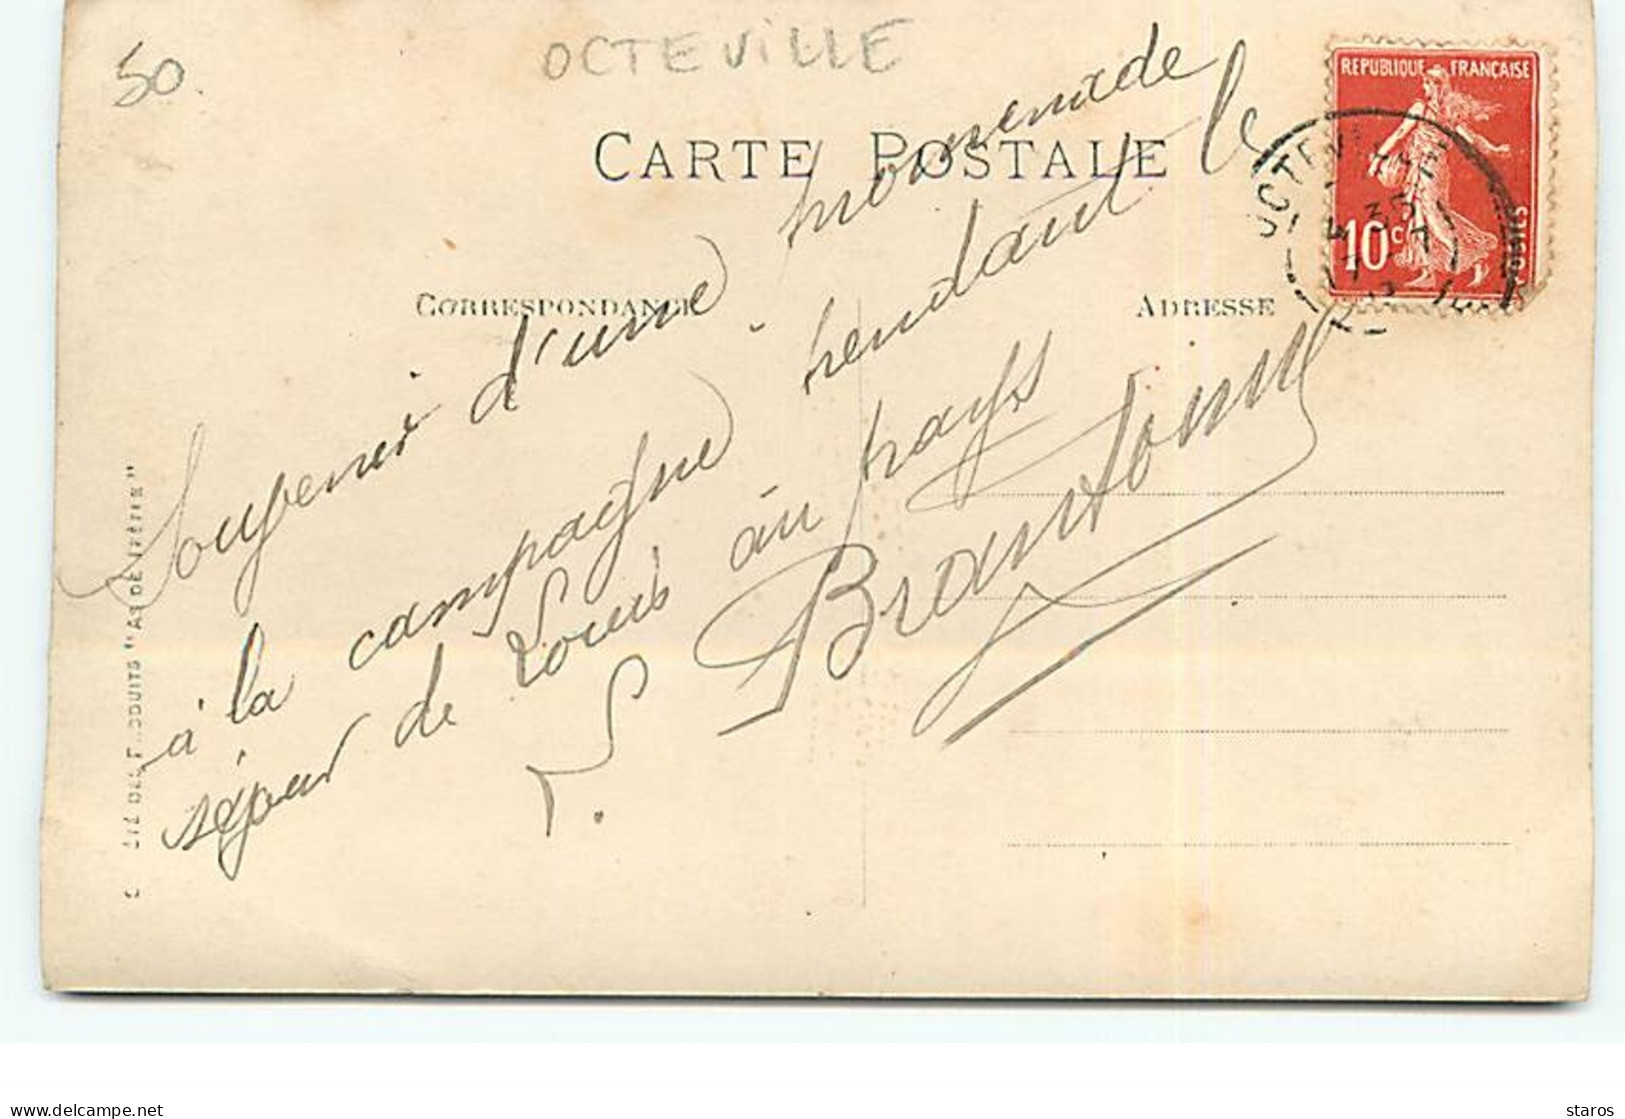 50.
OCTEVILLE
CARTE POSTALE
REPUBLIQUE FRANÇAISE
10c
POSTES
OCTEVILLE
CORRESPONDANCE
ADRESSE
Souvenir d'une promenade
à la campagne pendant le
séjour de Louis au pays
L. Brantonne
STÉ DES PRODUITS "AS DE TRÈFLE"
delcampe.net
staros